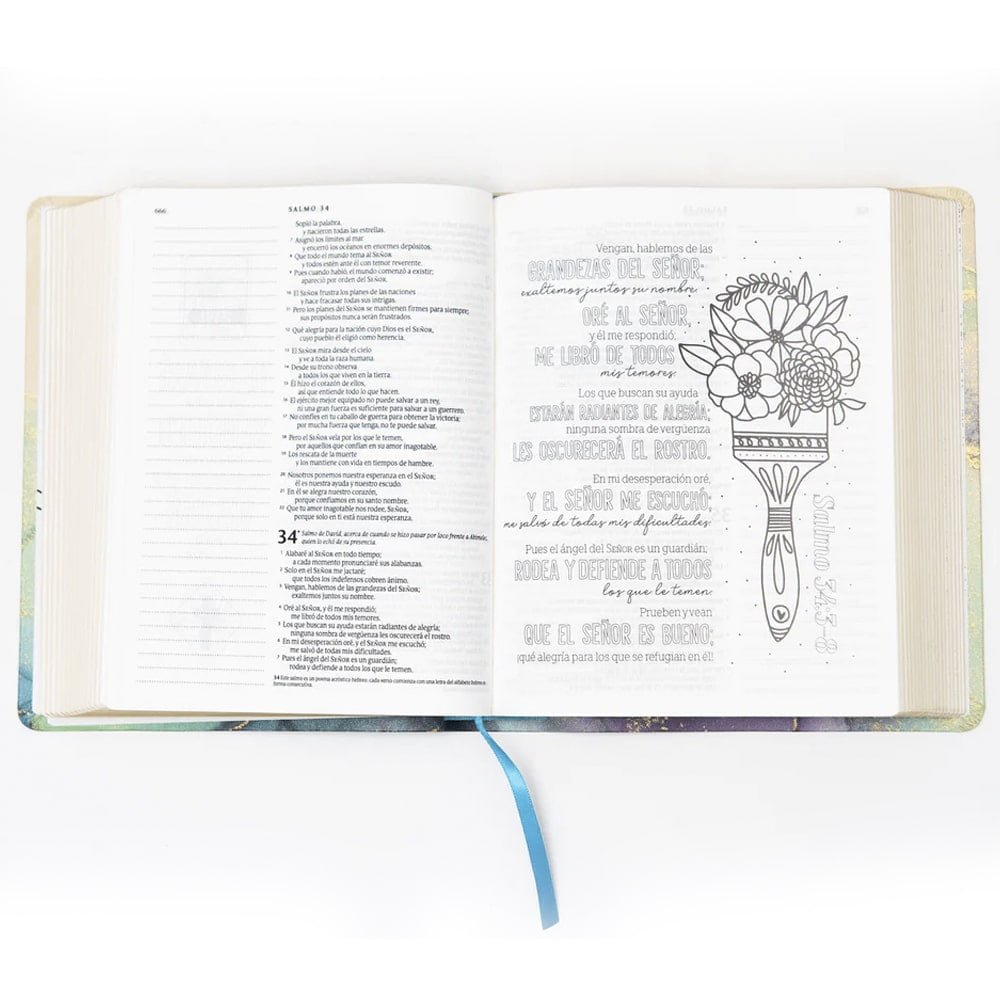 666
SALMO 34
Sopló la palabra,
y nacieron todas las estrellas.
7 Asignó los límites al mar
y encerró los océanos en enormes depósitos.
8 Que todo el mundo tema al SEÑOR
y todos estén ante él con temor reverente.
9 Pues cuando habló, el mundo comenzó a existir;
apareció por orden del SEÑOR.
10 El SEÑOR frustra los planes de las naciones
y hace fracasar todas sus intrigas.
11 Pero los planes del SEÑOR se mantienen firmes para siempre;
sus propósitos nunca serán frustrados.
12 Qué alegría para la nación cuyo Dios es el SEÑOR,
cuyo pueblo él eligió como herencia.
13 El SEÑOR mira desde el cielo
y ve a toda la raza humana.
14 Desde su trono observa
a todos los que viven en la tierra.
15 Él hizo el corazón de ellos,
así que entiende todo lo que hacen.
16 El ejército mejor equipado no puede salvar a un rey,
ni una gran fuerza es suficiente para salvar a un guerrero.
17 No confíes en tu caballo de guerra para obtener la victoria;
por mucha fuerza que tenga, no te puede salvar.
18 Pero el SEÑOR vela por los que le temen,
por aquellos que confían en su amor inagotable.
19 Los rescata de la muerte
y los mantiene con vida en tiempos de hambre.
20 Nosotros ponemos nuestra esperanza en el SEÑOR;
él es nuestra ayuda y nuestro escudo.
21 En él se alegra nuestro corazón,
porque confiamos en su santo nombre.
22 Que tu amor inagotable nos rodee, SEÑOR,
porque solo en ti está nuestra esperanza.
34* Salmo de David, acerca de cuando se hizo pasar por loco frente a Abimelec,
quien lo echó de su presencia.
1 Alabaré al SEÑOR en todo tiempo;
a cada momento pronunciaré sus alabanzas.
2 Solo en el SEÑOR me jactaré;
que todos los indefensos cobren ánimo.
3 Vengan, hablemos de las grandezas del SEÑOR;
exaltemos juntos su nombre.
4 Oré al SEÑOR, y él me respondió;
me libró de todos mis temores.
5 Los que buscan su ayuda estarán radiantes de alegría;
ninguna sombra de vergüenza les oscurecerá el rostro.
6 En mi desesperación oré, y el SEÑOR me escuchó;
me salvó de todas mis dificultades.
7 Pues el ángel del SEÑOR es un guardián;
rodea y defiende a todos los que le temen.
34 Este salmo es un poema acróstico hebreo; cada verso comienza con una letra del alfabeto hebreo en
forma consecutiva.
Vengan, hablemos de las
GRANDEZAS DEL SEÑOR;
exaltemos juntos su nombre.
ORÉ AL SEÑOR,
y él me respondió;
ME LIBRÓ DE TODOS
mis temores.
Los que buscan su ayuda
ESTARÁN RADIANTES DE ALEGRÍA;
ninguna sombra de vergüenza
LES OSCURECERÁ EL ROSTRO.
En mi desesperación oré,
Y EL SEÑOR ME ESCUCHÓ;
me salvó de todas mis dificultades.
Pues el ángel del SEÑOR es un guardián;
RODEA Y DEFIENDE A TODOS
los que le temen.
Prueben y vean
QUE EL SEÑOR ES BUENO;
¡qué alegría para los que se refugian en él!
Salmo 34:3-8